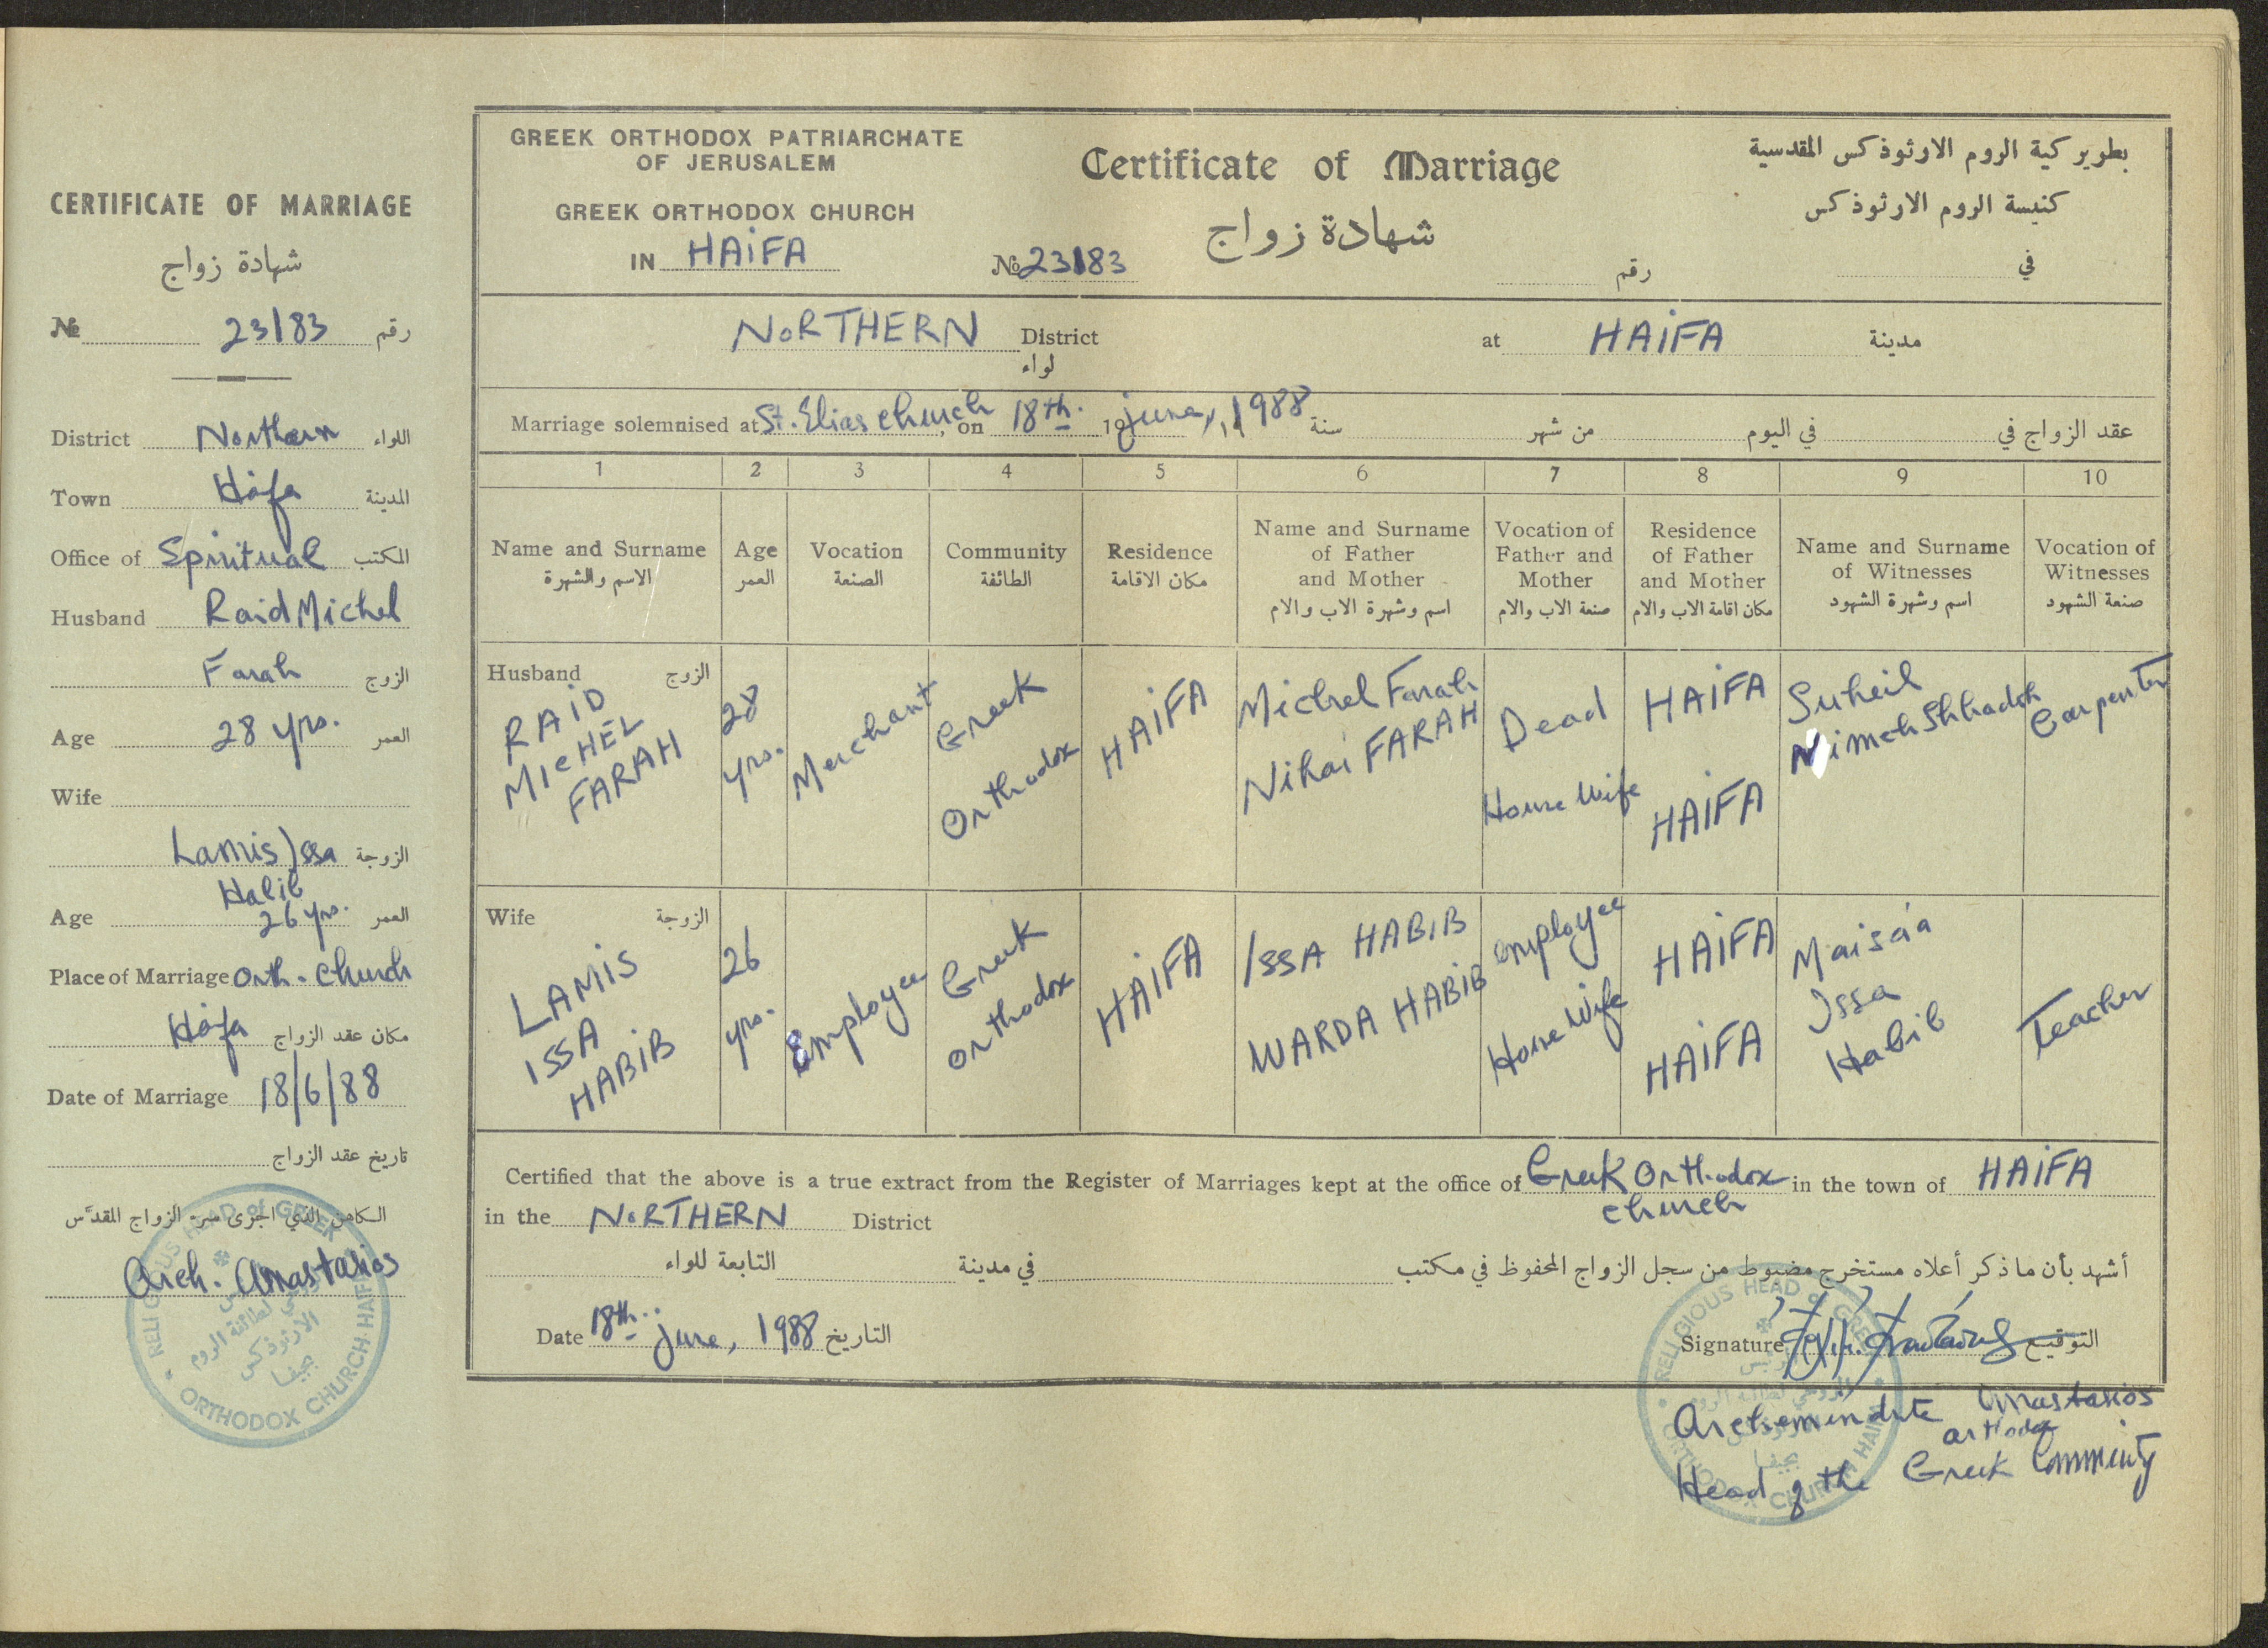 CERTIFICATE OF MARRIAGE
شهادة زواج
№ 23/83 رقم
District Northern اللواء
Town Haifa المدينة
Office of Spiritual المكتب
Husband Raid Michel
Farah الزوج
Age 28 yrs. العمر
Wife
Lamis Issa الزوجة
Habib
Age 26 yrs. العمر
Place of Marriage Orth. Church
Haifa مكان عقد الزواج
Date of Marriage 18/6/88
تاريخ عقد الزواج
الكاهن الذي اجرى سر الزواج المقدس
Arch. Anastasios
RELIGIOUS HEAD of GREEK ORTHODOX CHURCH HAIFA
لطائفة الروم
الارثوذكس
بحيفا
GREEK ORTHODOX PATRIARCHATE
OF JERUSALEM
GREEK ORTHODOX CHURCH
IN HAIFA
Certificate of Marriage
شهادة زواج
№ 23183
رقم
بطوير كية الروم الارثوذكس المقدسية
كنيسة الروم الارثوذكس
في
NORTHERN District at HAIFA مدينة
لواء
Marriage solemnised at St. Elias church, on 18th. 19 june, 1988 سنة من شهر في اليوم عقد الزواج في
1 2 3 4 5 6 7 8 9 10
Name and Surname
الاسم والشهرة
Age
العمر
Vocation
الصنعة
Community
الطائفة
Residence
مكان الاقامة
Name and Surname
of Father
and Mother
اسم وشهرة الاب والام
Vocation of
Father and
Mother
صنعة الاب والام
Residence
of Father
and Mother
مكان اقامة الاب والام
Name and Surname
of Witnesses
اسم وشهرة الشهود
Vocation of
Witnesses
صنعة الشهود
Husband الزوج
RAID
MICHEL
FARAH
28
yrs.
Merchant
Greek
Orthodox
HAIFA
Michel Farah
Nihai FARAH
Dead
House Wife
HAIFA
HAIFA
Suheil
Nimeh Shhadeh
Carpenter
Wife الزوجة
LAMIS
ISSA
HABIB
26
yrs.
Employee
Greek
orthodox
HAIFA
ISSA HABIB
WARDA HABIB
employee
House Wife
HAIFA
HAIFA
Maisa'a
Issa
Habib
Teacher
Certified that the above is a true extract from the Register of Marriages kept at the office of Greek Orthodox in the town of HAIFA
church
in the NORTHERN District
أشهد بأن ما ذكر أعلاه مستخرج مضبوط من سجل الزواج المحفوظ في مكتب في مدينة التابعة للواء
Date 18th. june, 1988 التاريخ
Signature التوقيع
RELIGIOUS HEAD of GREEK ORTHODOX CHURCH HAIFA
بحيفا
Archemindrite Anastasios
orthodox
Head of the Greek Comminity